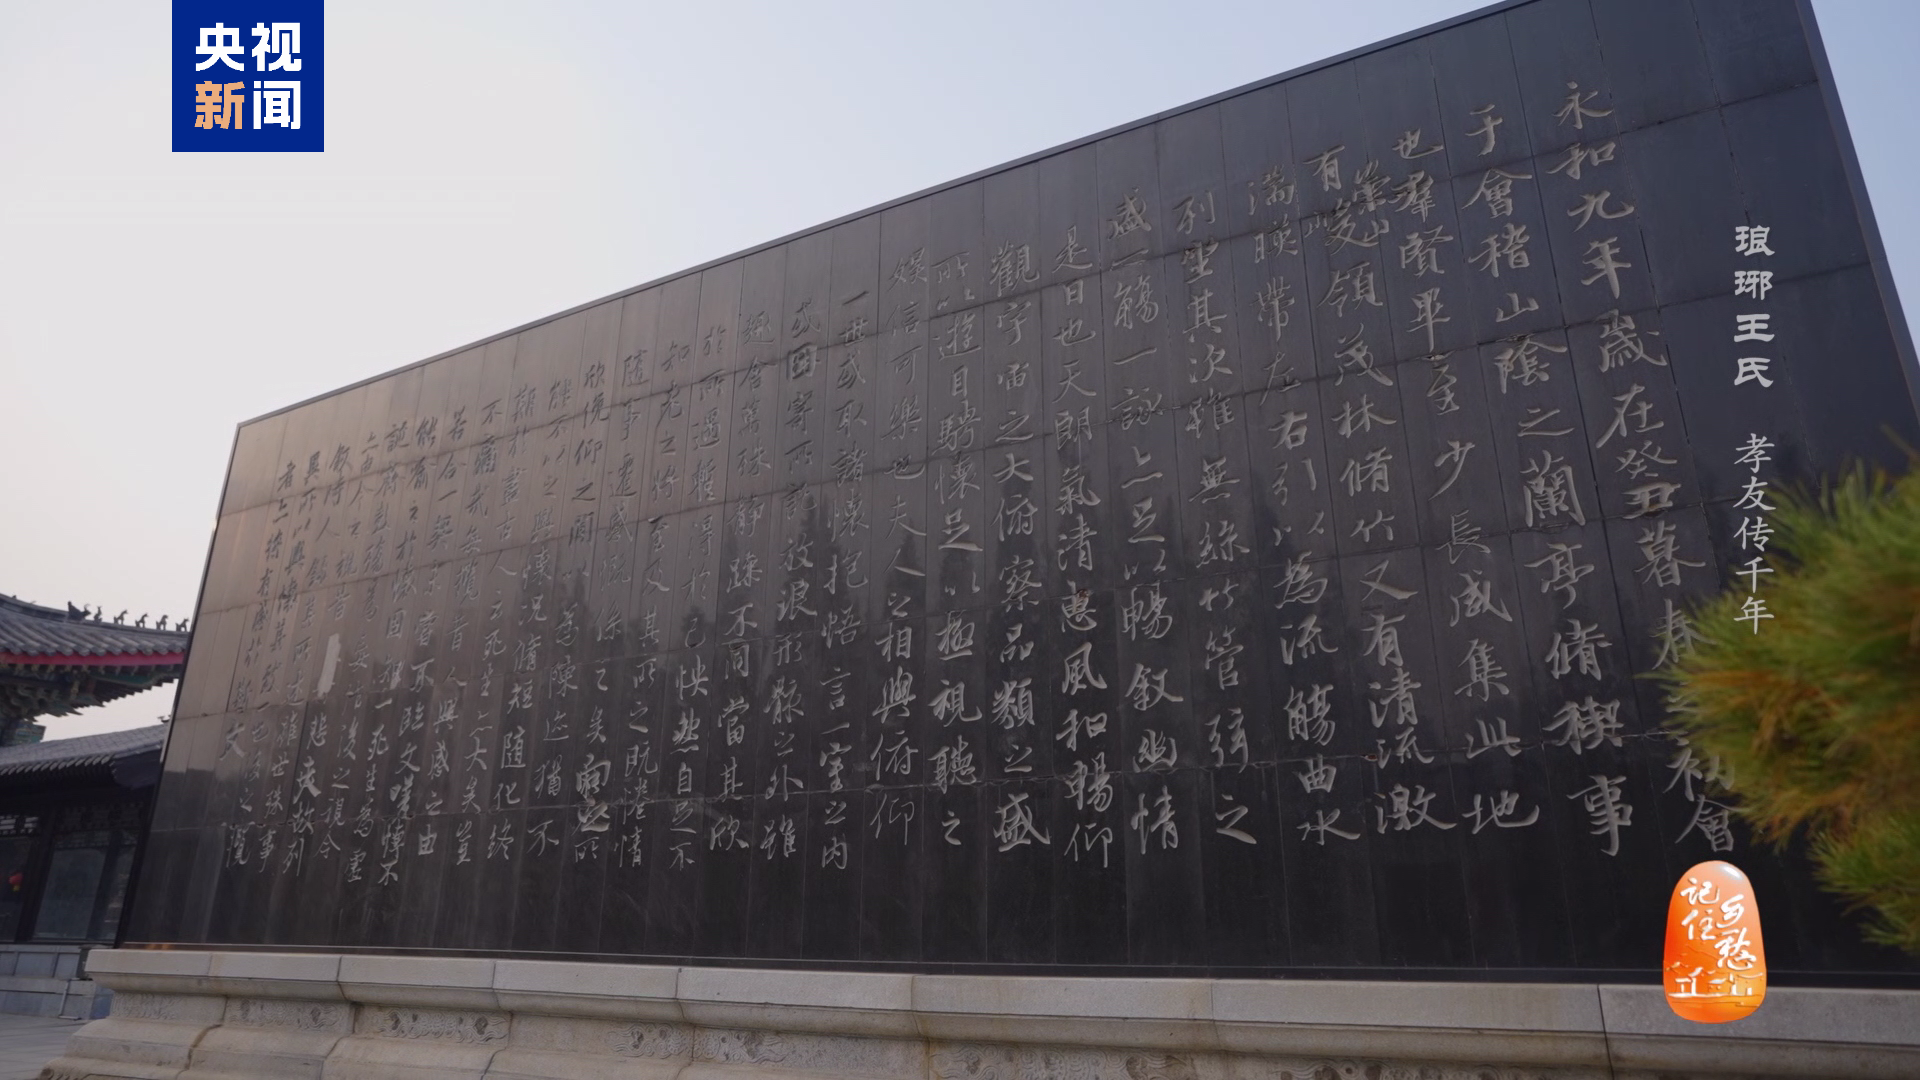 央视
新闻
琅琊王氏 孝友传千年
永和九年歲在癸丑暮春之初會
于會稽山陰之蘭亭脩稧事
也羣賢畢至少長咸集此地
有崇山峻領茂林脩竹又有清流激
湍暎帶左右引以為流觴曲水
列坐其次雖無絲竹管弦之
盛一觴一詠亦足以暢敘幽情
是日也天朗氣清惠風和暢仰
觀宇宙之大俯察品類之盛
所以遊目騁懷足以極視聽之
娛信可樂也夫人之相與俯仰
一世或取諸懷抱悟言一室之內
或因寄所託放浪形骸之外雖
趣舍萬殊靜躁不同當其欣
於所遇暫得於己怏然自足不
知老之將至及其所之既惓情
隨事遷感慨係之矣向之所
欣俛仰之閒以為陳迹猶不
能不以之興懷況脩短隨化終
期於盡古人云死生亦大矣豈
不痛哉每攬昔人興感之由
若合一契未嘗不臨文嗟悼不
能喻之於懷固知一死生為虛
誕齊彭殤為妄作後之視今
亦由今之視昔悲夫故列
敘時人錄其所述雖世殊事
異所以興懷其致一也後之攬
者亦將有感於斯文
记住
乡愁